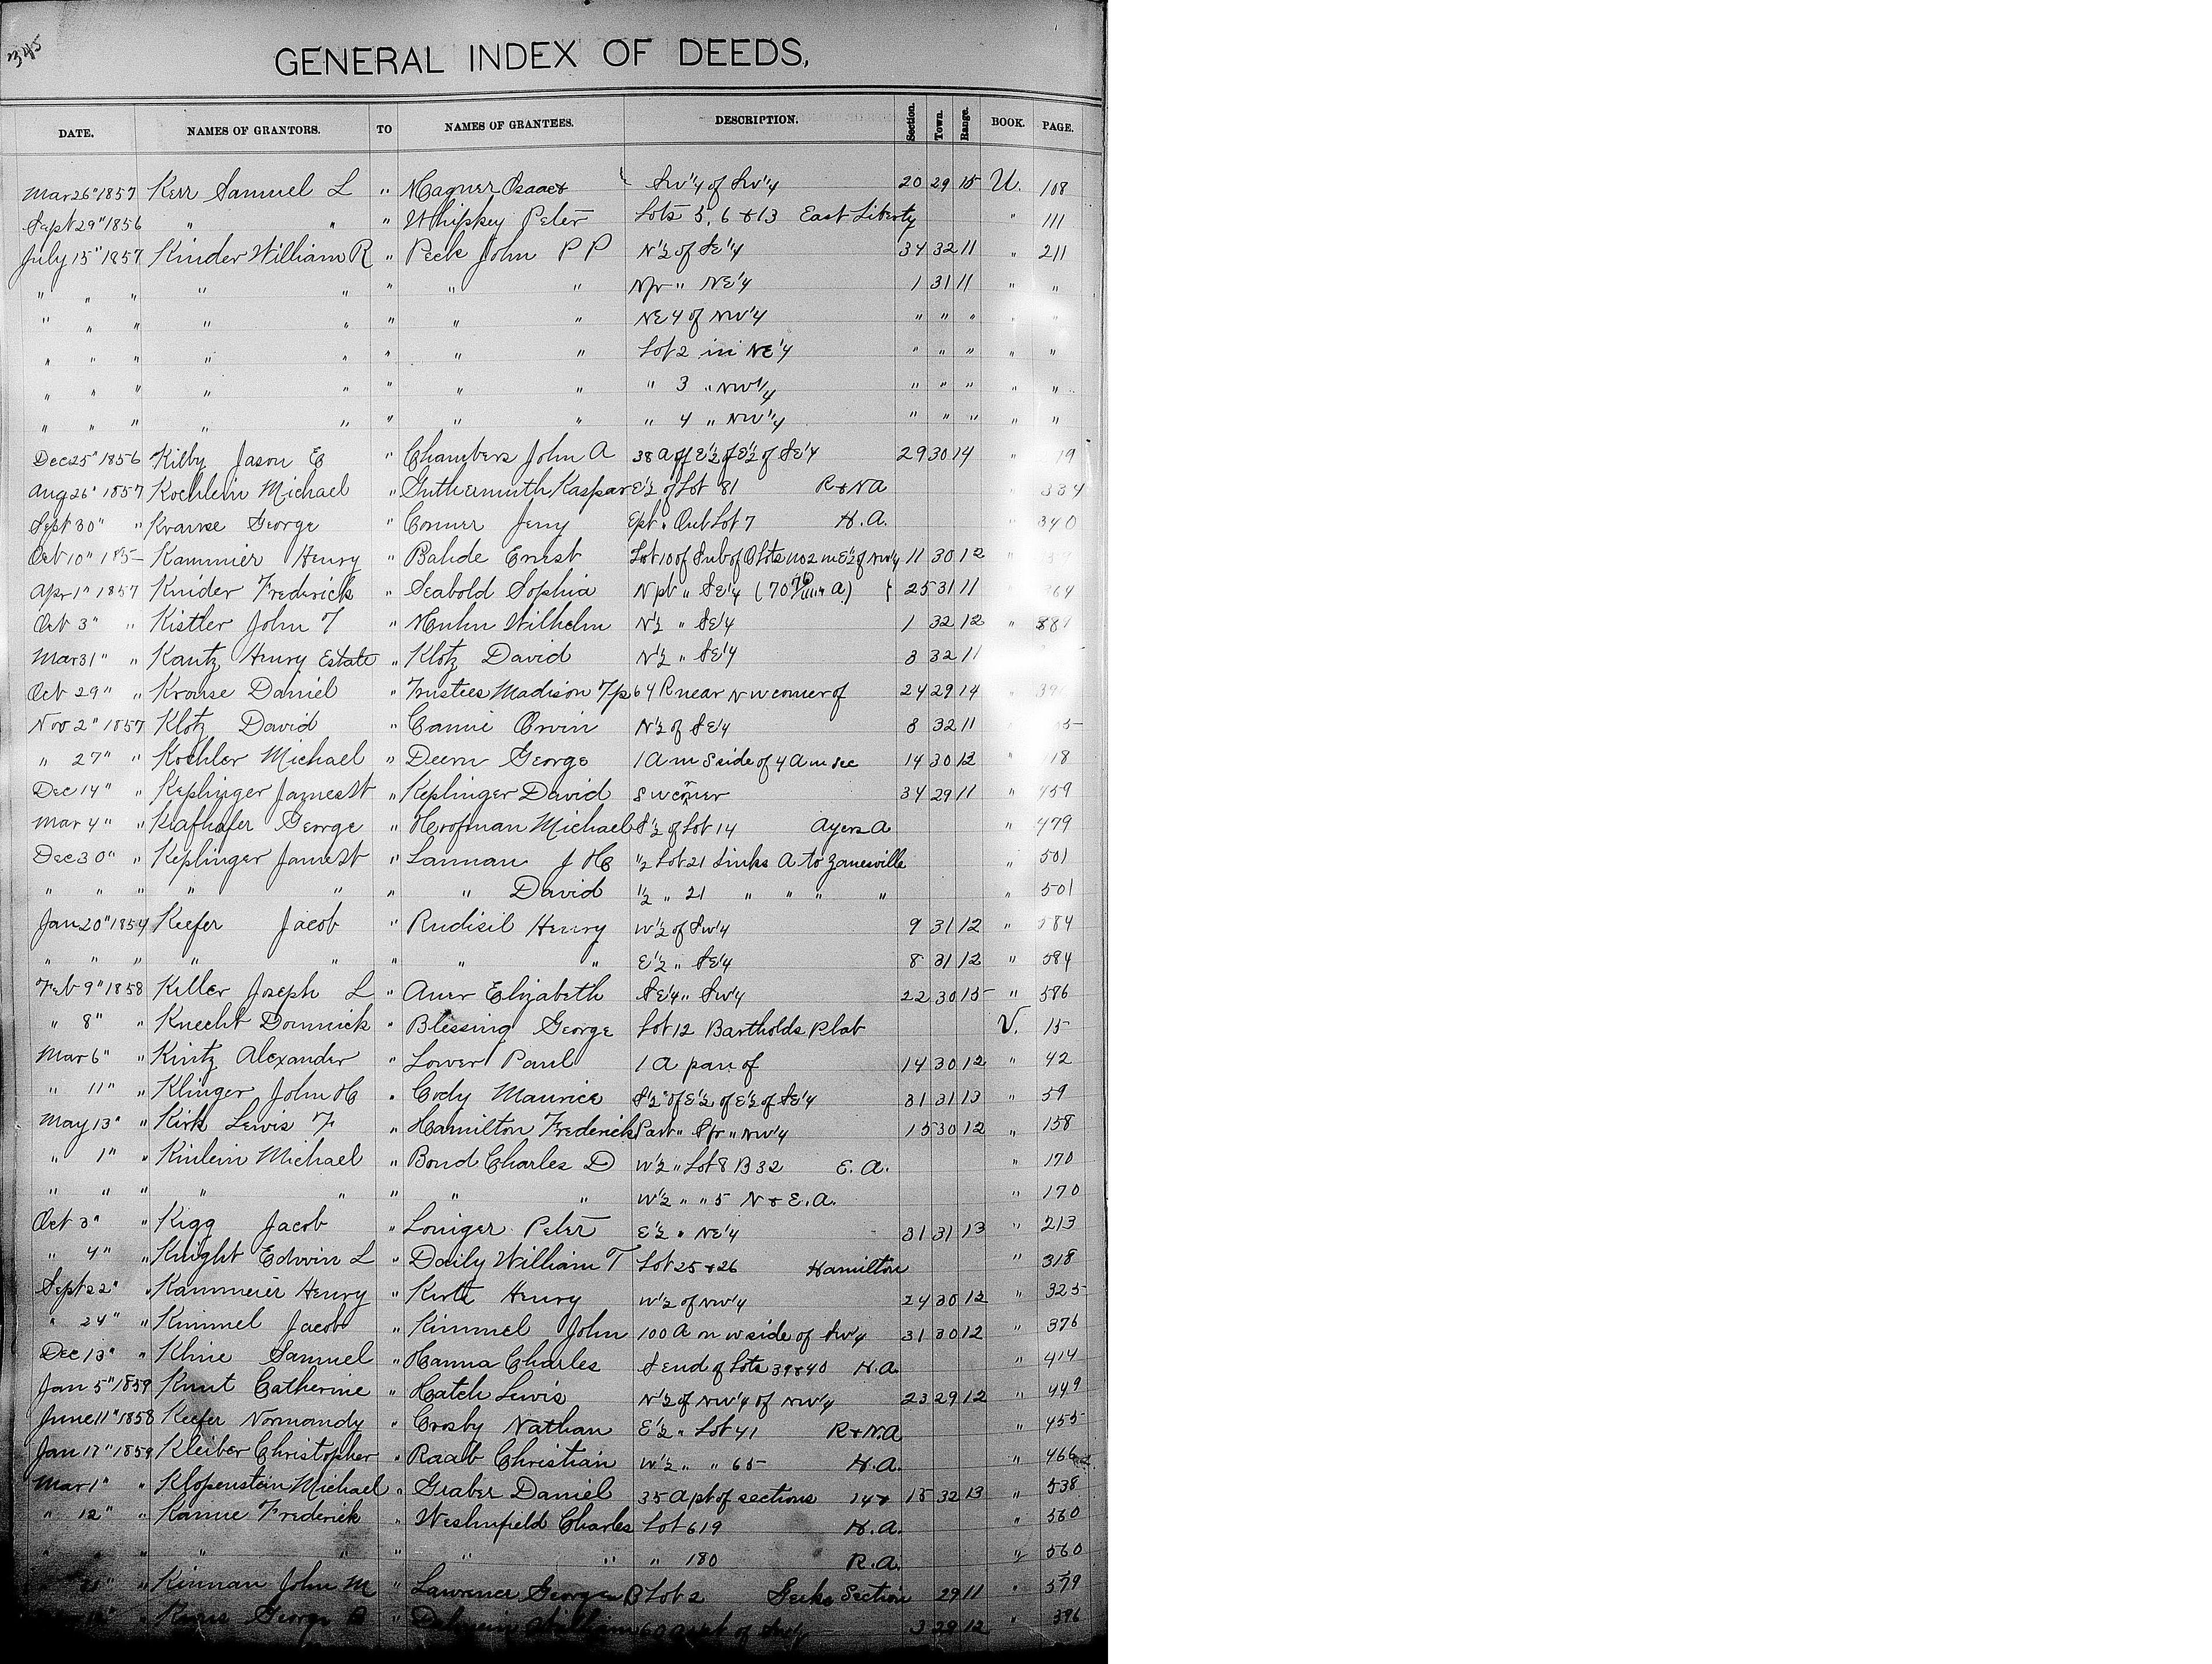 345
GENERAL INDEX OF DEEDS,
DATE. NAMES OF GRANTORS. TO NAMES OF GRANTEES. DESCRIPTION. Section. Town. Range. BOOK. PAGE.
Mar 26" 1857 Kerr Samuel L " Wagner Isaac Sw 1/4 of Sw 1/4 20 29 15 U. 108
Sept 29" 1856 " " " Whipkey Peter Lots 5, 6 & 13 East Liberty " 111
July 15" 1857 Kinder William R " Peck John P P N 1/2 of SE 1/4 34 32 11 " 211
" " " " " " " " Nfr " NE 1/4 1 31 11 " "
" " " " " " " " NE 4 of NW 1/4 " " " " "
" " " " " " " " Lot 2 in NE 1/4 " " " " "
" " " " " " " " " 3 " NW 1/4 " " " " "
" " " " " " " " " 4 " NW 1/4 " " " " "
Dec 25" 1856 Kilby Jason E " Chambers John A 38 A off E 1/2 of E 1/2 of SE 1/4 29 30 14 " 19
Aug 26" 1857 Kochlein Michael " Guthermuth Kaspar E 1/2 of Lot 81 R & N A " 334
Sept 30" " Krause George " Conner Jerry Ept " Out Lot 7 H. A. " 340
Oct 10" 185- Kammier Henry " Bahde Ernst Lot 10 of Sub of O Lots no 2 in E 1/2 of NW 1/4 11 30 12 "
Apr 1" 1857 Knider Frederick " Seabold Sophia N pt " SE 1/4 25 31 11 " 264
Oct 3" " Kistler John T " Muhn Wilhelm N 1/2 " SE 1/4 1 32 12 "
Mar 31" " Kautz Henry Estate " Klotz David N 1/2 " SE 1/4 8 32 11
Oct 29" " Krouse Daniel " Trustees Madison Tp 64 R near N W corner of 24 29 14 "
Nov 2" 1857 Klotz David " Cannie Orvin N 1/2 of SE 1/4 8 32 11
" 27" " Koehler Michael " Deem George 1 A in S side of 4 A in sec 14 30 12 " 18
Dec 14" " Keplinger James St " Keplinger David S W corner 34 29 11 " 459
Mar 4" " Klafhafer George " Hoofman Michael S 1/2 of Lot 14 Ayers A " 479
Dec 30" " Keplinger James St " Lannan J H 1/2 Lot 21 Links A to Zanesville " 501
" " " " " " " David 1/2 " 21 " " " " " 501
Jan 20" 1854 Keefer Jacob " Rudisil Henry W 1/2 of Sw 1/4 9 31 12 " 584
" " " " " " " " E 1/2 " SE 1/4 8 31 12 " 584
Feb 9" 1858 Keller Joseph L " Auer Elizabeth SE 1/4 " Sw 1/4 22 30 15 " 586
" 8" " Knecht Dominick " Blessing George Lot 12 Bartholds Plat V. 15
Mar 6" " Kintz Alexander " Lower Paul 1 A part of 14 30 12 " 42
" 11" " Klinger John H " Cody Maurice S 1/2 of E 1/2 of E 1/2 of SE 1/4 31 31 13 " 59
May 13" " Kirk Lewis F " Hamilton Frederick Part " Sfr " NW 1/4 15 30 12 " 158
" 1" " Kinlein Michael " Bond Charles D W 1/2 " Lot 8 B 32 E. A. " 170
" " " " " " " " W 1/2 " " 5 N & E. A. " 170
Oct 3" " Kigg Jacob " Loniger Peter E 1/2 " NE 1/4 31 31 13 " 213
" 4" " Knight Edwin L " Daily William T Lot 25 & 26 Hamilton " 318
Sept 22" " Kammeier Henry " Kirte Henry W 1/2 of NW 1/4 24 30 12 " 325
" 24" " Kimmel Jacob " Kimmel John 100 A in w side of Sw 1/4 31 30 12 " 376
Dec 13" " Kline Samuel " Hanna Charles S end of Lots 39 & 40 H. A. " 414
Jan 5" 1859 Knut Catherine " Hatch Lewis N 1/2 of NW 1/4 of NW 1/4 23 29 12 " 449
June 11" 1858 Keefer Normandy " Crosby Nathan E 1/2 " Lot 41 R & N. A " 455
Jan 17" 1859 Kleiber Christopher " Raab Christian W 1/2 " " 65 H. A. " 466
Mar 1" " Klopenstein Michael " Graber Daniel 35 A pt of sections 14 & 15 32 13 " 538
" 12" " Kanne Frederick " Weshnfield Charles Lot 619 H. A. " 560
" " " " " " " " " 180 R. A. " 560
" Kinnan John M " Lawrence George B Lot 2 Geeks Section 29 11 " 579
" George " William 60 A pt of 3 29 12 " 396